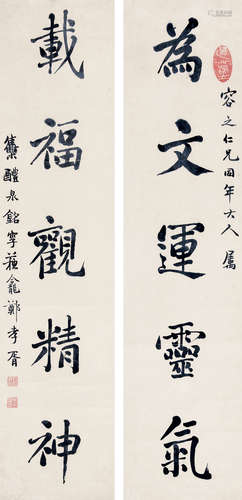 為文運靈氣
容之仁兄同年大人 属
載福觀精神
集醴泉銘字 蘇龕鄭孝胥